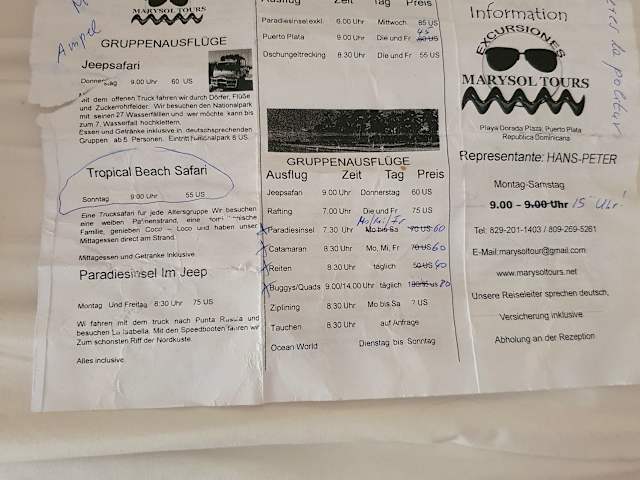 Ampel
MARYSOL TOURS
GRUPPENAUSFLÜGE
Jeepsafari
Donnerstag 9.00 Uhr 60 US
Mit dem offenen Truck fahren wir durch Dörfer, Flüße
und Zuckerrohrfelder. Wir besuchen den Nationalpark
mit seinen 27 Wasserfällen und wer möchte kann bis
zum 7. Wasserfall hochklettern.
Essen und Getränke inklusive in deutschsprechenden
Gruppen ab 5 Personen. Eintritt Nationalpark 8 US
Tropical Beach Safari
Sonntag 9.00 Uhr 55 US
Eine Trucksafari für jede Altersgruppe Wir besuchen
eine weiben Palmenstrand, eine
Familie, genieben Coco – Loco und haben unser
Mittagessen direkt am Strand.
Mittagessen und Getränke Inklusive
Paradiesinsel Im Jeep
Montag Und Freitag 8:30 Uhr 75 US
Wi fahren mit dem truck nach Punta Rusula und
besuchen La Isabella. Mit den Speedbooten fahren wir
Zum schönsten Riff der Nordküste.
Alles inclusive.
Ausflug Zeit Tag Preis
Paradiesinsel exkl. 6.00 Uhr Mittwoch 85 US
45
Puerto Plata 9.00 Uhr Die und Fr US
Dschungeltrecking 8.30 Uhr Die und Fr 55 US
GRUPPENAUSFLÜGE
Ausflug Zeit Tag Preis
Jeepsafari 9.00 Uhr Donnerstag 60 US
Rafting 7.00 Uhr Die und Fr 75 US
Mo/Mi/Fr
x Paradiesinsel 7.30 Uhr Mo bis Sa 70 US 60
x Catamaran 8.30 Uhr Mo, Mi, Fr 70 US 60
x Reiten 8.30 Uhr täglich 50 US 40
x Buggys/Quads 9.00/14.00 Uhr täglich us 80
Ziplining 8.30 Uhr Mo bis Sa ? US
Tauchen 8.30 Uhr auf Anfrage
Ocean World Dienstag bis Sonntag
Information
EXCURSIONES
MARYSOL TOURS
Playa Dorada Plaza, Puerto Plata
Republica Dominicana
Representante: HANS-PETER
Montag-Samstag
9.00 – 9.00 Uhr 15 Uhr!
Tel: 829-201-1403 / 809-269-5261
E-Mail:marysoltour@gmail.com
www.marysoltours.net
Unsere Reiseleiter sprechen deutsch,
Versicherung inklusive
Abholung an der Rezeption